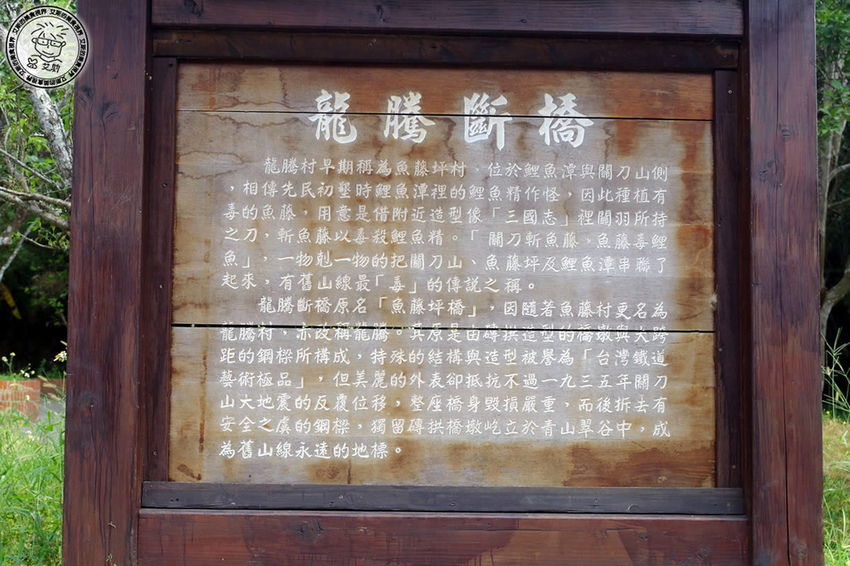 龍騰斷橋
龍騰村早期稱為魚藤坪村、位於鯉魚潭與關刀山側
，相傳先民初墾時鯉魚潭裡的鯉魚精作怪，因此種植有
毒的魚藤，用意是借附近造型像「三國志」裡關羽所持
之刀，斬魚藤以毒殺鯉魚精。「關刀斬魚藤、魚藤毒鯉
魚」，一物剋一物的把關刀山、魚藤坪及鯉魚潭串聯了
起來，有舊山線最「毒」的傳說之稱。
龍騰斷橋原名「魚藤坪橋」，因隨著魚藤村更名為
龍騰村，亦改稱龍騰。其原是由磚拱造型的橋墩與大跨
距的鋼樑所構成，特殊的結構與造型被譽為「台灣鐵道
藝術極品」，但美麗的外表卻抵抗不過一九三五年關刀
山大地震的反覆位移，整座橋身毀損嚴重，而後拆去有
安全之虞的鋼樑，獨留磚拱橋墩屹立於青山翠谷中，成
為舊山線永遠的地標。